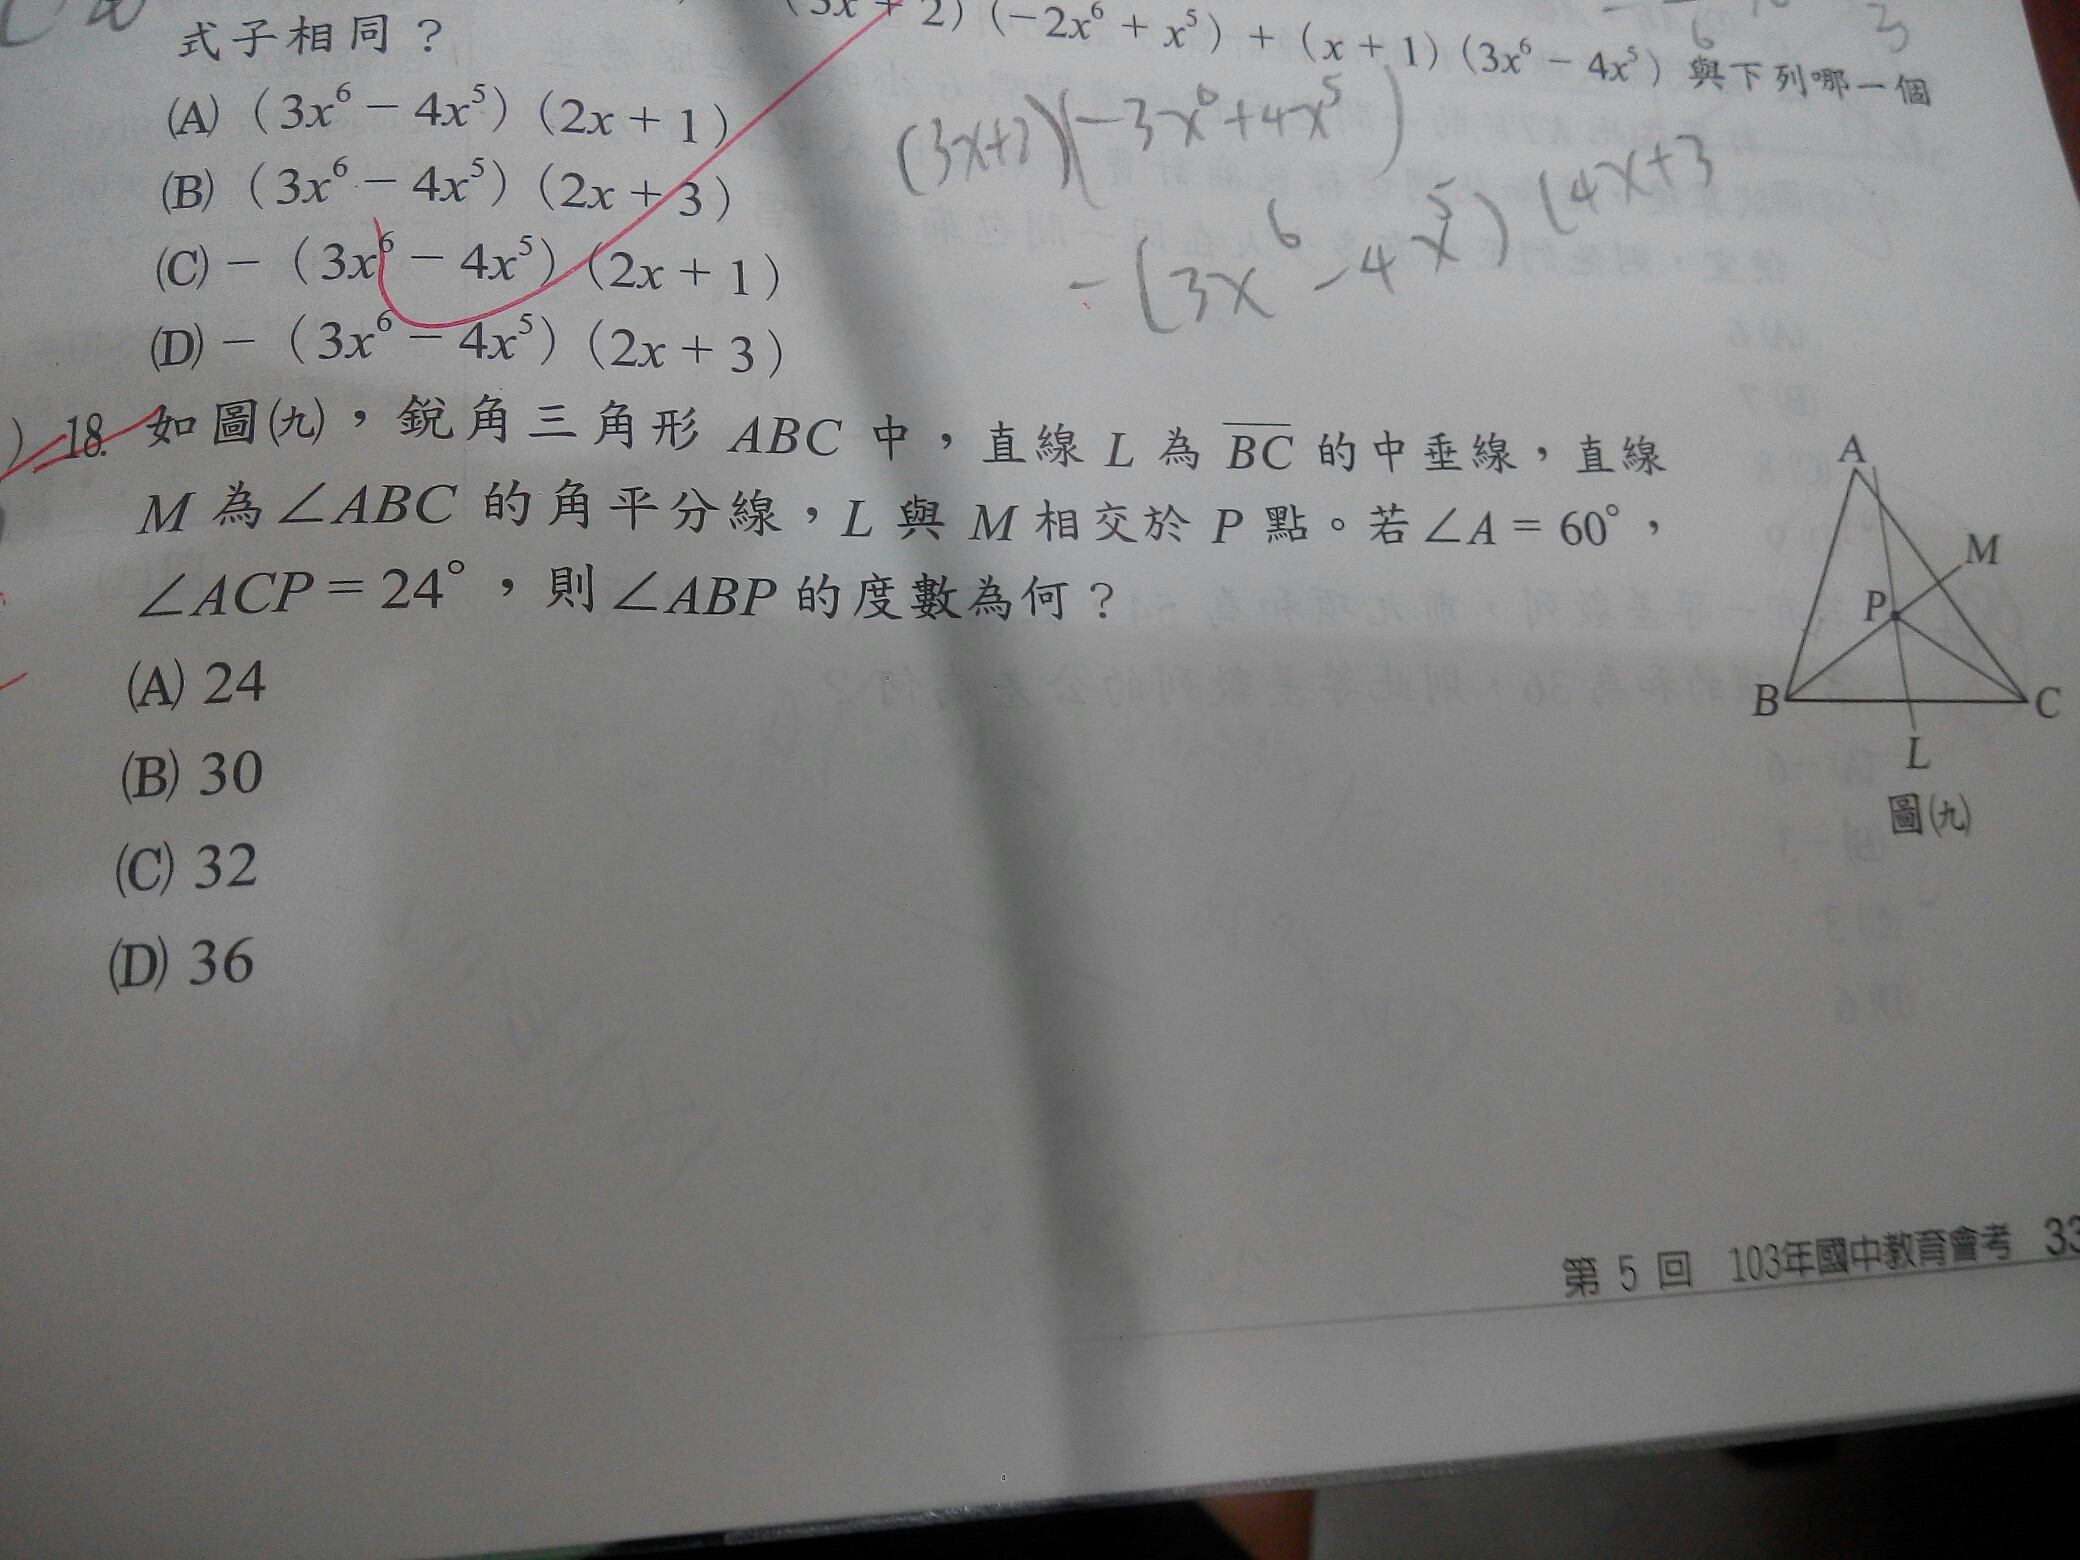 + 2) (−2x⁶ + x⁵) + (x + 1) (3x⁶ − 4x⁵) 與下列哪一個
式子相同？
(A) (3x⁶ − 4x⁵) (2x + 1)
(B) (3x⁶ − 4x⁵) (2x + 3)
(C) − (3x⁶ − 4x⁵) (2x + 1)
(D) − (3x⁶ − 4x⁵) (2x + 3)
(3x+2)(−3x⁶+4x⁵)
−(3x⁶−4x⁵)(4x+3
6
3
) 18. 如圖(九)，銳角三角形 ABC 中，直線 L 為 BC 的中垂線，直線
M 為∠ABC 的角平分線，L 與 M 相交於 P 點。若∠A = 60°，
∠ACP = 24°，則∠ABP 的度數為何？
(A) 24
(B) 30
(C) 32
(D) 36
A
M
P
B
C
L
圖(九)
第 5 回 103年國中教育會考 33